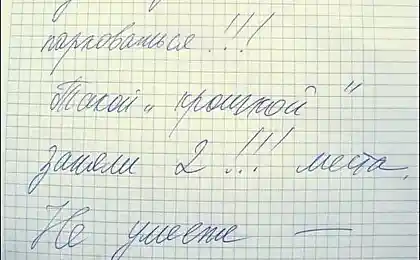 парковаться!!!
Такой „крошкой"
заняли 2!!! места.
Не умеете —